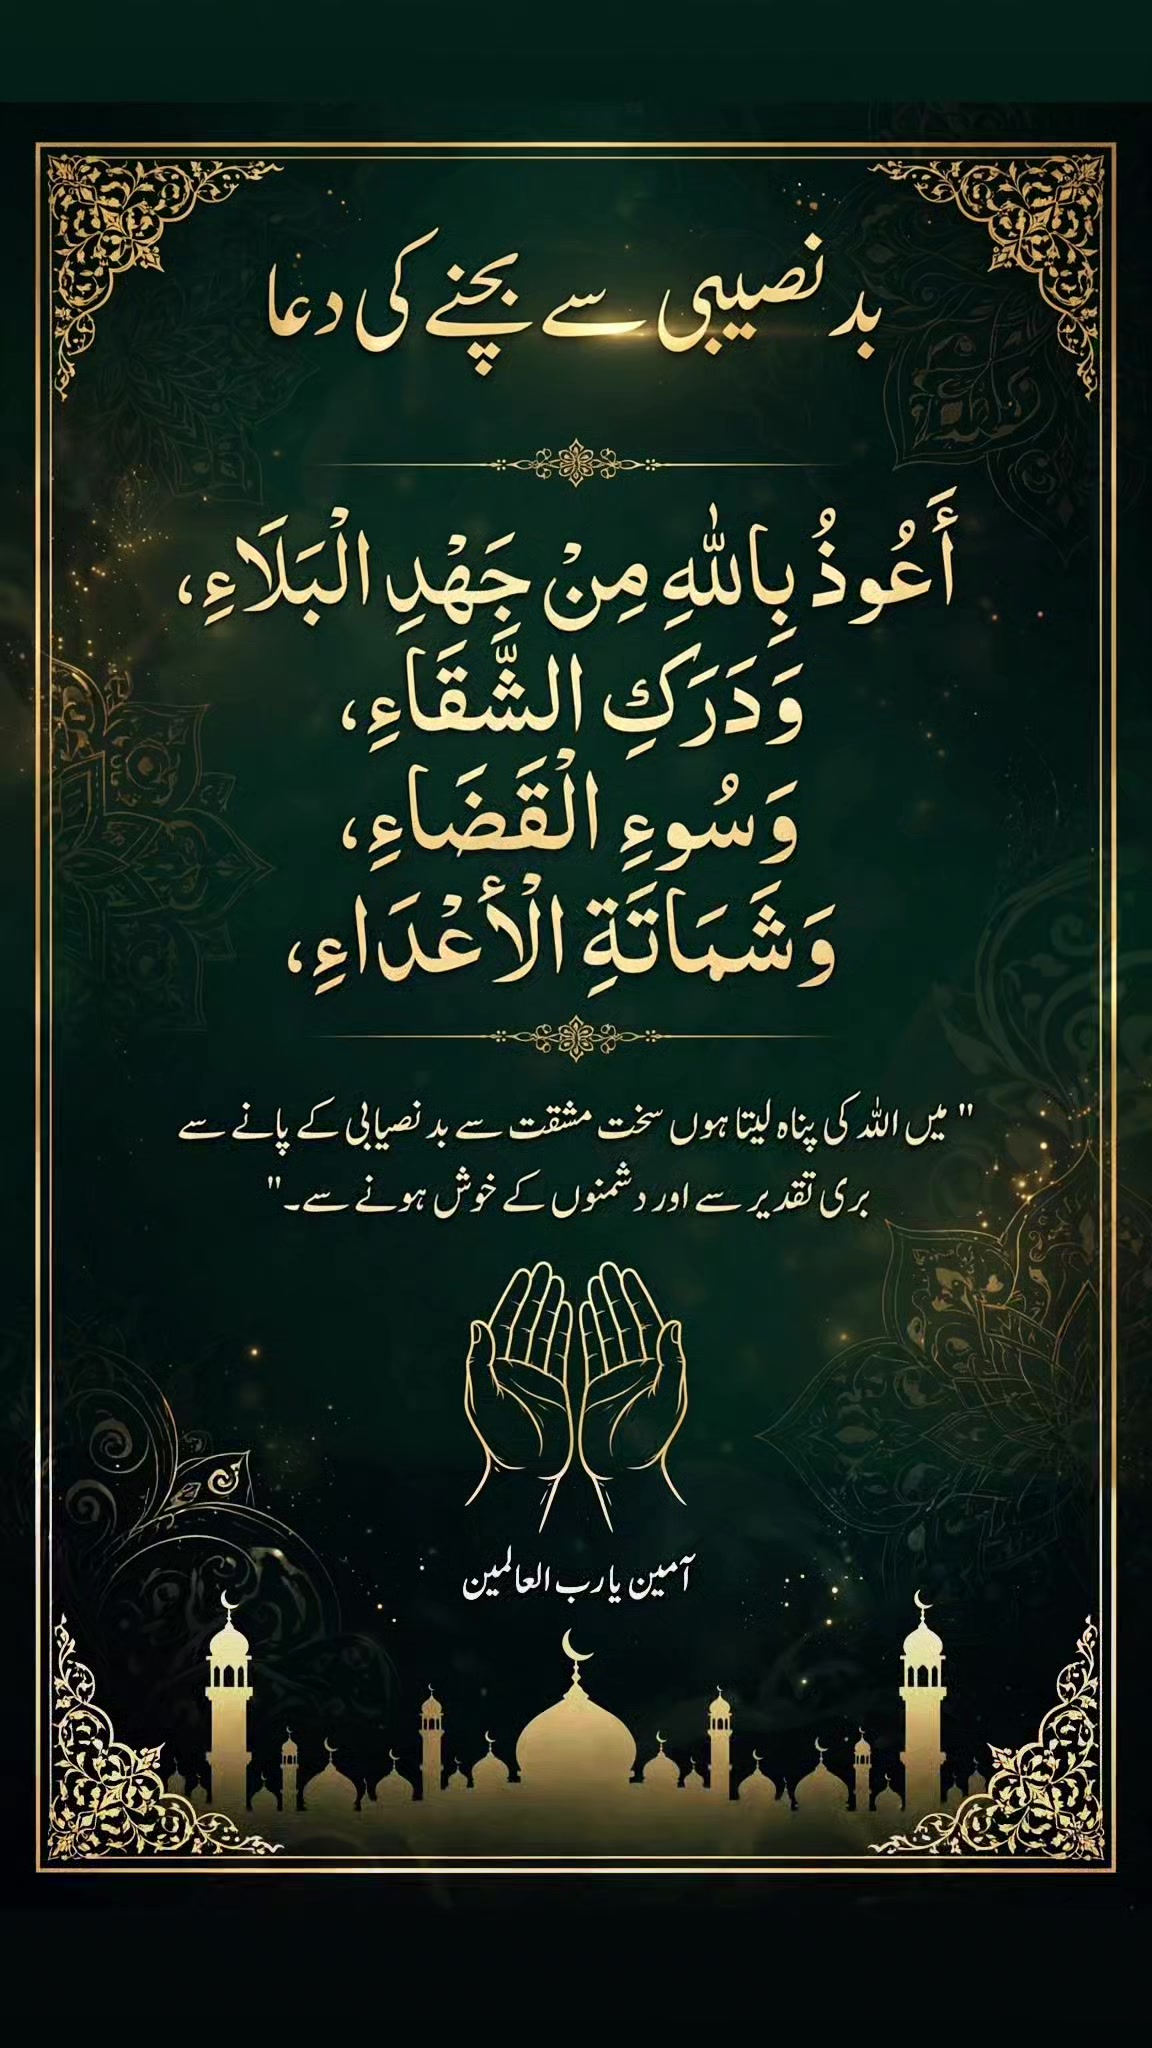 بد نصیبی سے بچنے کی دعا
أَعُوذُ بِاللهِ مِنْ جَهْدِ الْبَلَاءِ،
وَدَرَكِ الشَّقَاءِ،
وَسُوءِ الْقَضَاءِ،
وَشَمَاتَةِ الْأَعْدَاءِ،
" میں اللہ کی پناہ لیتا ہوں سخت مشقت سے بد نصیابی کے پانے سے
بری تقدیر سے اور دشمنوں کے خوش ہونے سے۔"
آمین یا رب العالمین